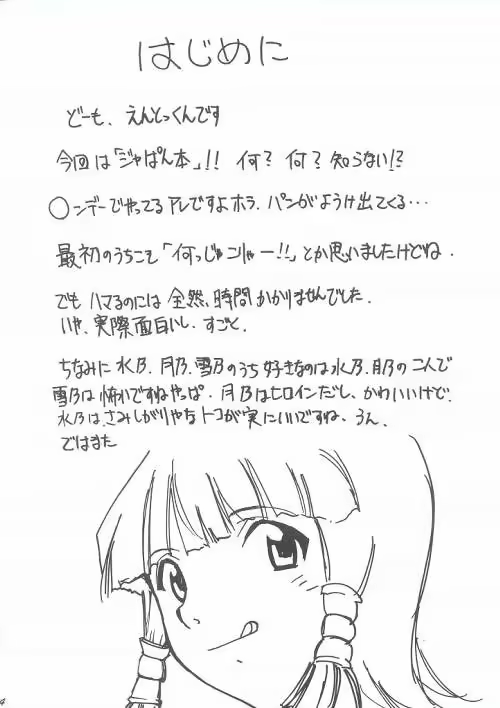 はじめに
どーも、えんとっくんです
今回は「ジャぱん本」!! 何? 何? 知らない!?
◯ンデーでやってるアレですよホラ、パンがようけ出てくる…
最初のうちこそ「何っじゃこりゃー!!」とか思いましたけどね.
でも ハマるのには 全然、時間かかりませんでした.
いや、実際面白いし、すごく.
ちなみに 水乃、月乃、雪乃のうち好きなのは水乃、月乃の二人で
雪乃は怖いですねやっぱ、月乃はヒロインだし、かわいいけど、
水乃は、さみしがりやなトコが実にいいですね、うん.
ではまた
4